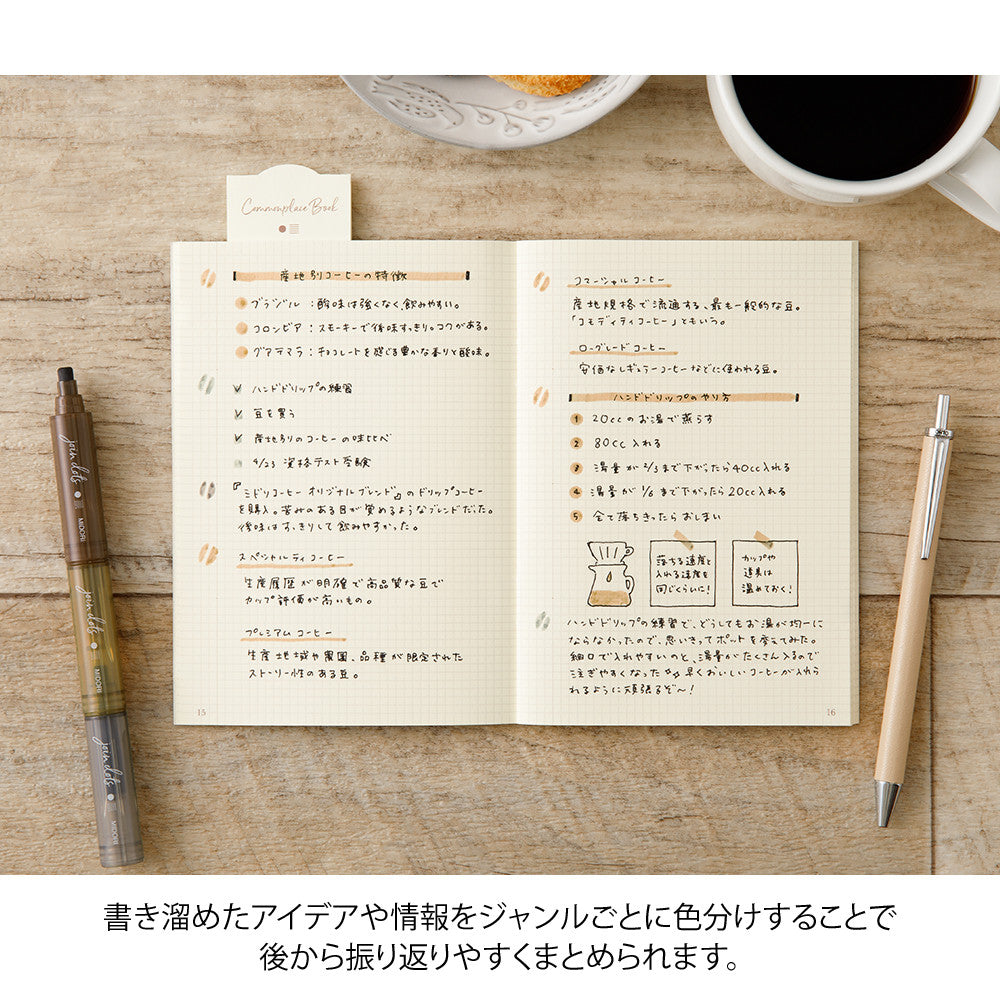 Commonplace Book
産地別コーヒーの特徴
ブラジル：酸味は強くなく、飲みやすい。
コロンビア：スモーキーで後味すっきり。コクがある。
グアテマラ：チョコレートを感じる豊かな香りと酸味。
ハンドドリップの練習
豆を買う
産地別のコーヒーの味比べ
9/23 資格テスト受験
『ミドリコーヒー オリジナルブレンド』のドリップコーヒー
を購入。苦みのある目が覚めるようなブレンドだった。
後味はすっきりして飲みやすかった。
スペシャルティコーヒー
生産履歴が明確で高品質な豆で
カップ評価が高いもの。
プレミアムコーヒー
生産地域や農園、品種が限定された
ストーリー性のある豆。
15
コマーシャルコーヒー
産地規格で流通する、最も一般的な豆。
「コモディティコーヒー」ともいう。
ローグレードコーヒー
安価なレギュラーコーヒーなどに使われる豆。
ハンドドリップのやり方
1 20ccのお湯で蒸らす
2 80cc入れる
3 湯量が2/3まで下がったら40cc入れる
4 湯量が1/6まで下がったら20cc入れる
5 全て落ちきったらおしまい
落ちる速度と
入れる速度を
同じくらいに！
カップや
道具は
温めておく！
ハンドドリップの練習で、どうしてもお湯が均一に
ならなかったので、思いきってポットを変えてみた。
細口で入れやすいのと、湯量がたくさん入るので
注ぎやすくなった 早くおいしいコーヒーが入れら
れるように頑張るぞ〜！
16
join dots
MIDORI
join dots
MIDORI
join dots
MIDORI
書き溜めたアイデアや情報をジャンルごとに色分けすることで
後から振り返りやすくまとめられます。